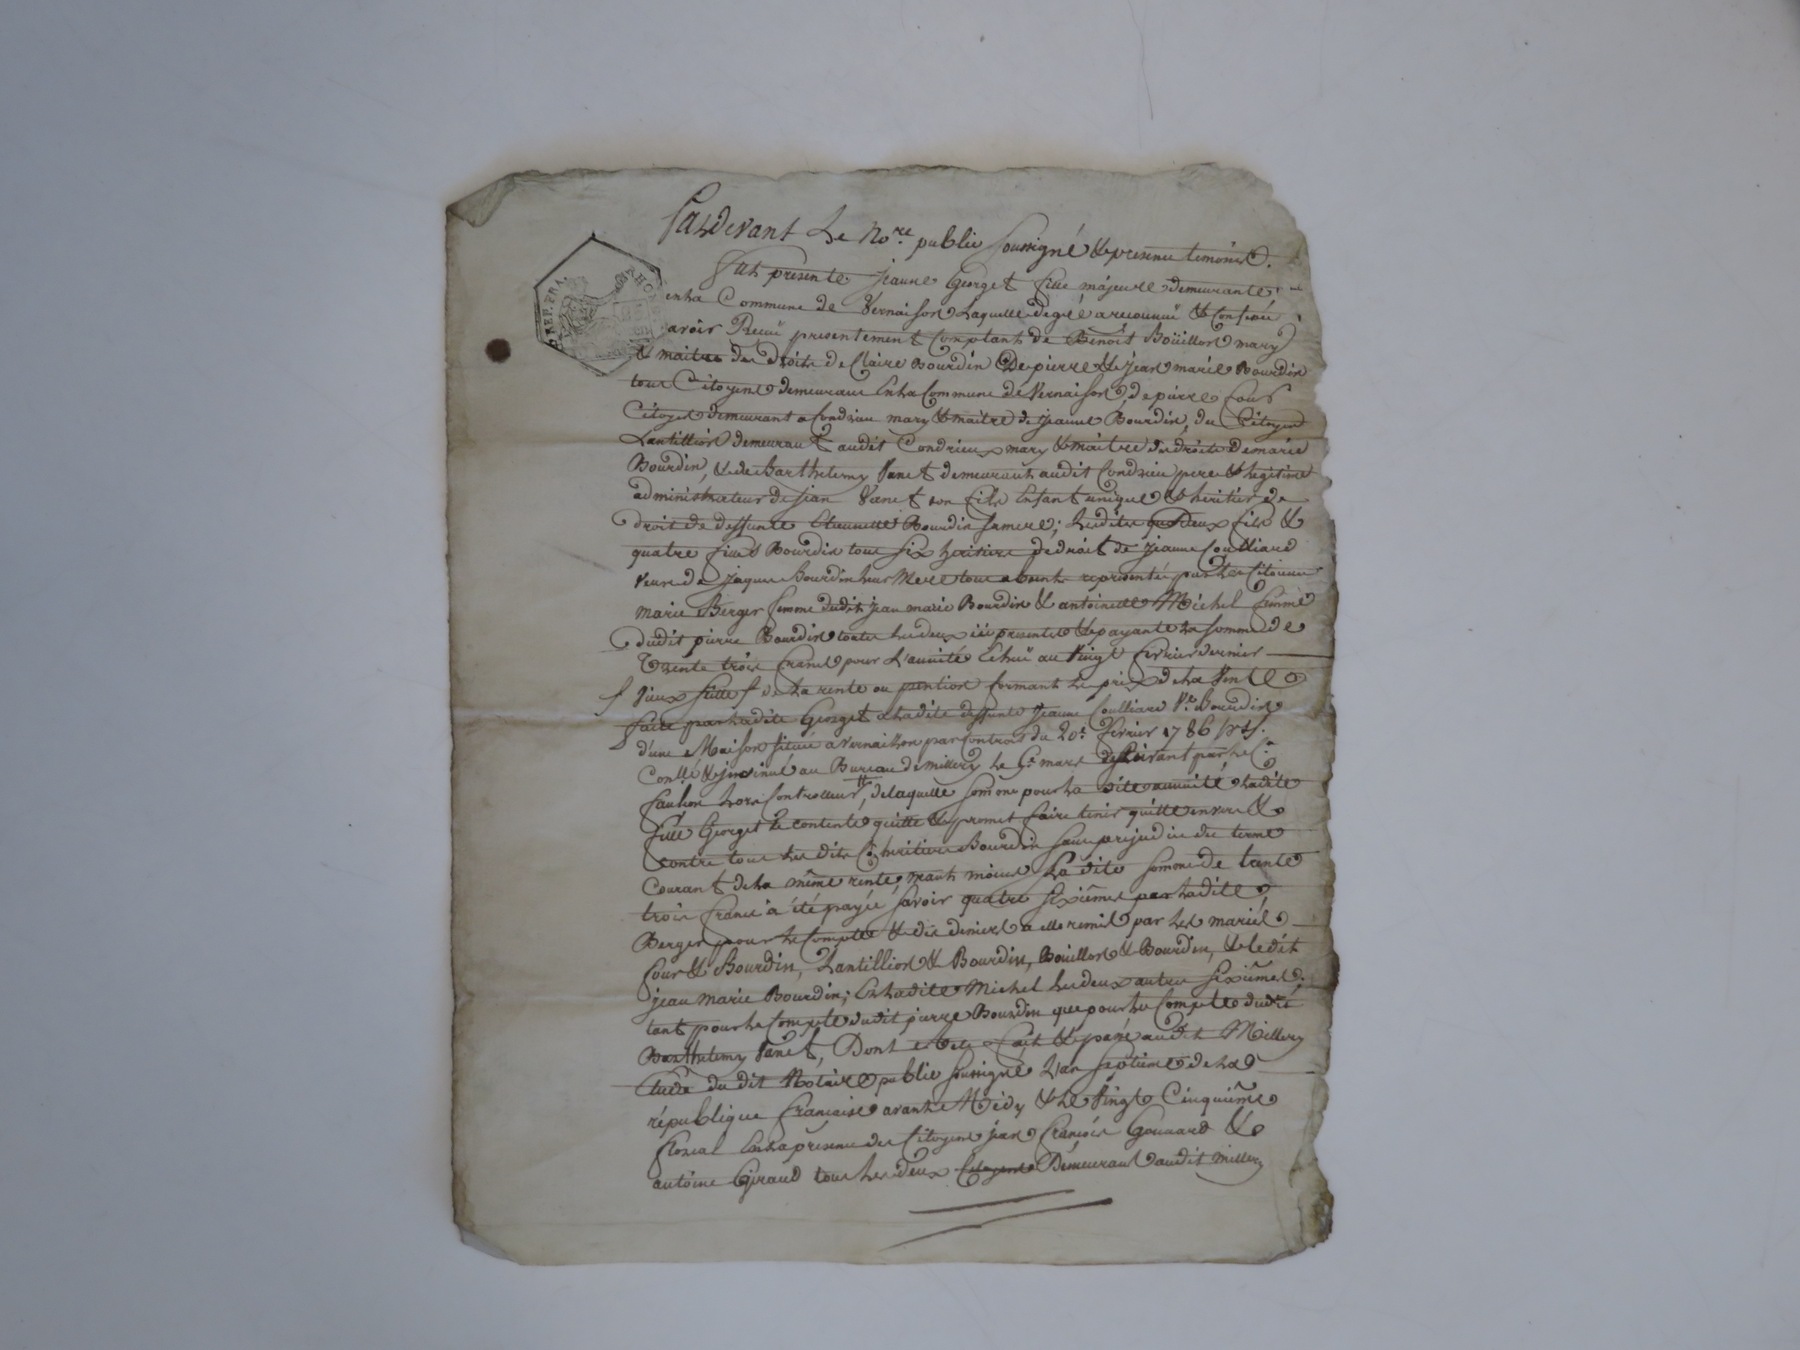 Pardevant Le No.re public soussigné & en presence temoins.
Fut presente jeanne Georget fille majeure demeurante
en la Commune de Vernaison Laquelle de gré a reconnuë & confessé
avoir Reçu presentement Comptant de Benoît Boüillon mary
& maitre des droits de Claire Bourdin De pierre & jean marie Bourdin
tous Citoyens demeurans En la Commune de Vernaison, de pierre Four
Citoyen demeurant a Condrieu mary & maitre de jeanne Bourdin, du Citoyen
Lantillion demeurant audit Condrieux mary & maitre des droits de marie
Bourdin, & de Barthelemy Vanet demeurant audit Condrieu pere & legitime
administrateur de jean Vanet son fils Enfant unique & heritier de
droit de deffunte Bourdin sa mere; Lesdits deux fils &
quatre filles Bourdin tous six heritiers de droit de jeanne Coulliard
veuve de jaques Bourdin leur Mere tous absents representés par Les Citoiennes
marie Berger femme dudit jean marie Bourdin & antoinette Michel femme
dudit pierre Bourdin toutes Les deux ici presentes & payantes La somme de
Trente trois francs pour L'annuité Echuë au Vingt fevrier dernier
vieux stille de La rente ou pention formant Le prix de La Vente
faite par Ladite Georget a Ladite deffunte Jeanne Coulliard V.e Bourdin
d'une Maison située a Vernaison par Contract du 20.e Fevrier 1786
Con.llé & insinué au Bureau de millery Le mars suivant par Le C.n
Lors Controlleur, de laquelle somme pour La dite annuité Ladite
fille Georget se contente quitte & promet faire tenir quitte envers &
contre tous Les dits C. heritiers Bourdin sans prejudice du terme
Courant de La même rente, La dite somme de trente
trois francs a été payée savoir quatre sixiêmes par Ladite
Berger pour Le Compte & des deniers a elle remis par Les mariés
four & Bourdin, Lantillion & Bourdin, Boüillon & Bourdin, & ledit
jean marie Bourdin; Et Ladite Michel Les deux autres sixiêmes
tant pour Le Compte dudit pierre Bourdin que pour Le Compte dudit
Barthelemy Vanet, Dont acte fait & passé audit Millery
Etude du dit Notaire public soussigné L'an septiême de La
république francaise avant Midy & Le Vingt Cinquiême
floreal En La presence des Citoyens jean François Gouvard &
antoine Giraud tous Les deux Citoyens Demeurant audit millery
REP. FRA.